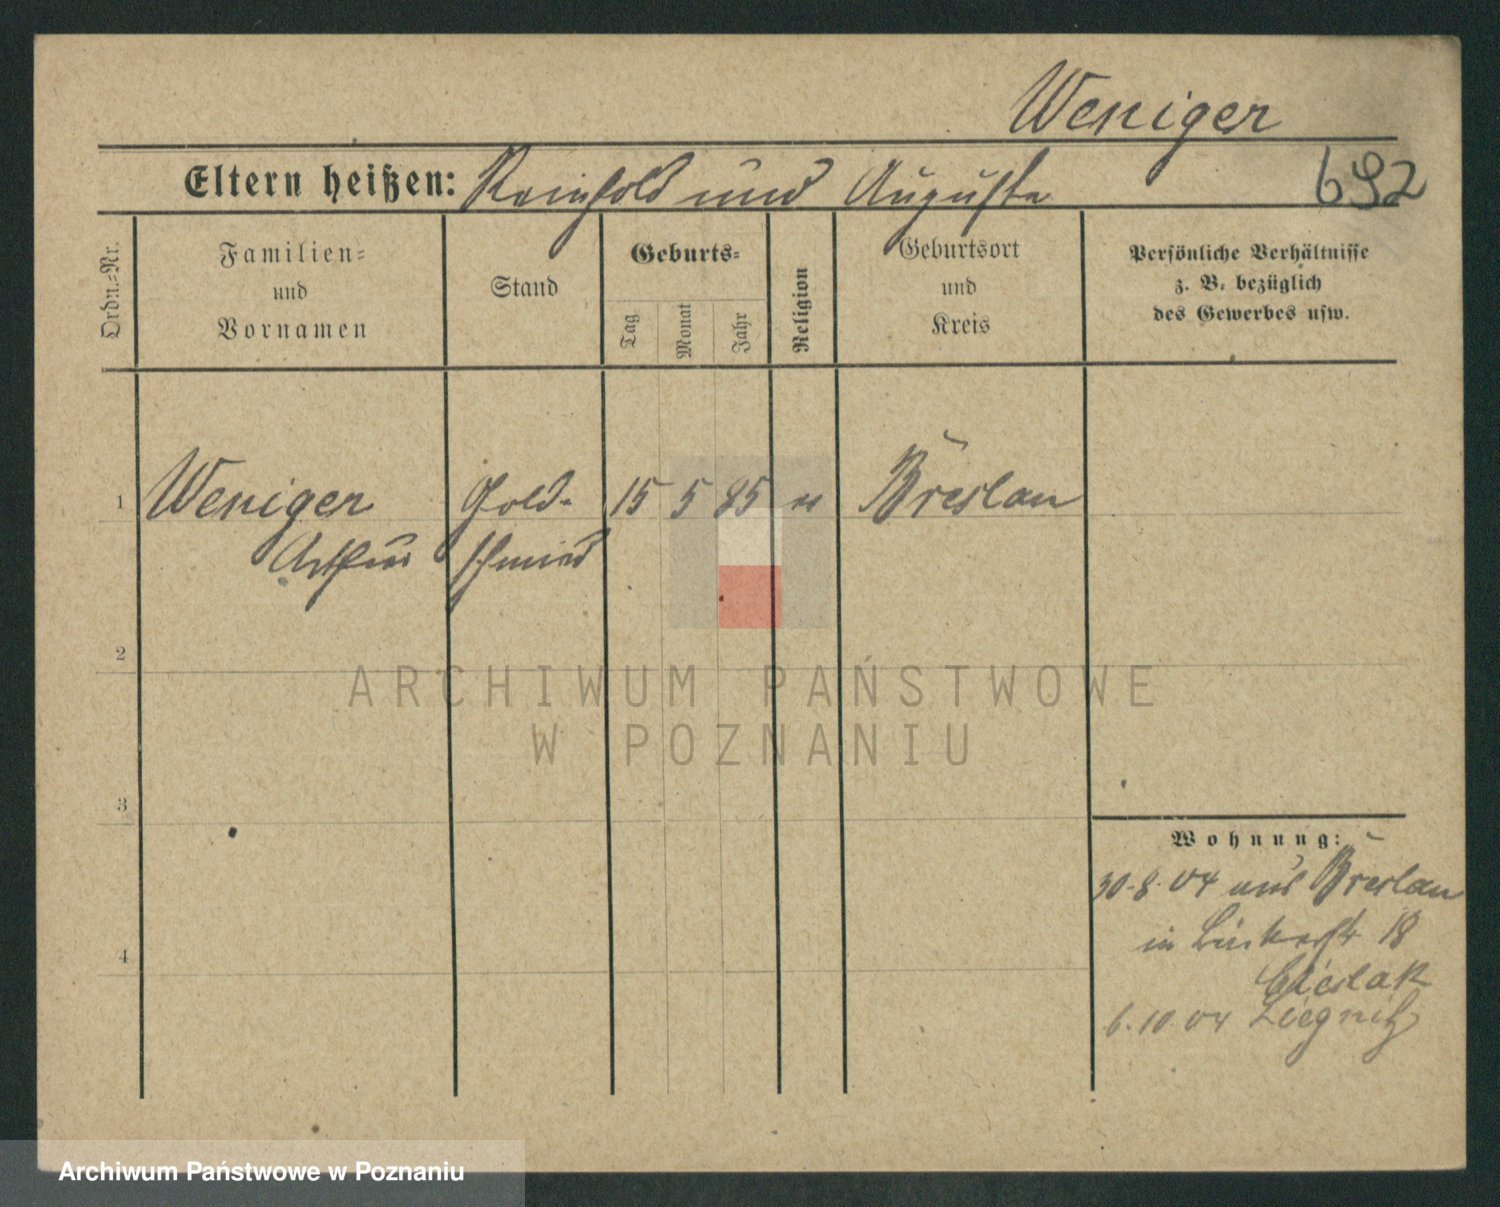 Weniger
Eltern heißen: Reinhold und Auguste
692
Ordn.-Nr.
Familien-
und
Vornamen
Stand
Geburts-
Tag
Monat
Jahr
Religion
Geburtsort
und
Kreis
Persönliche Verhältnisse
z. B. bezüglich
des Gewerbes usw.
1 Weniger Gold- 15 5 85 Breslau
Arthur schmied
2
3
4
Wohnung:
30.8.04 aus Breslau
in 18
Cieslak
6.10.04 Liegnitz
ARCHIWUM PAŃSTWOWE
W POZNANIU
Archiwum Państwowe w Poznaniu